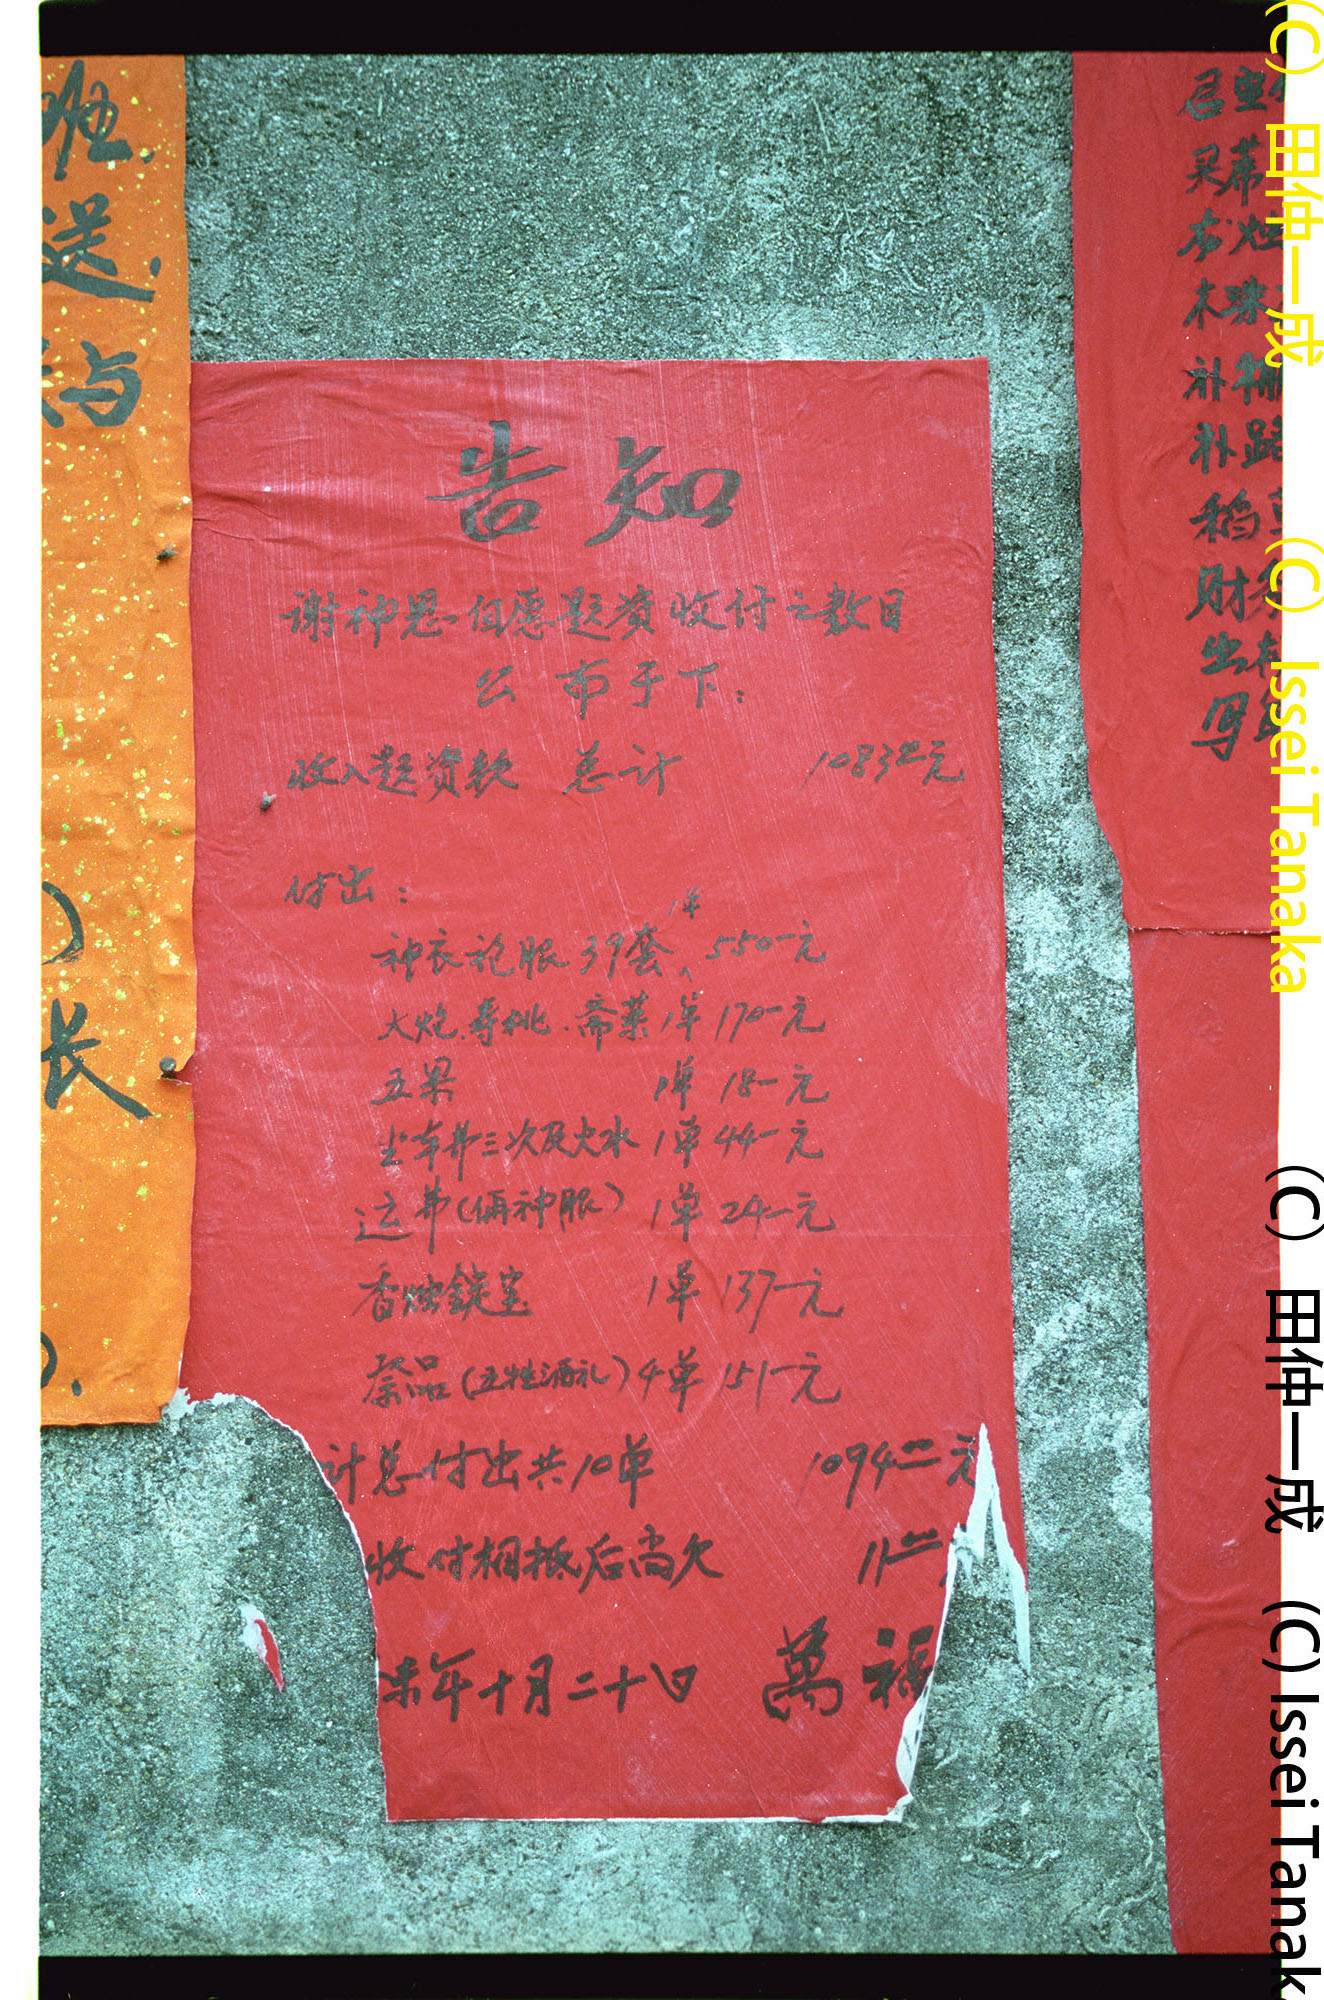 班
送
与
长
告知
谢神恩自愿题资收付之数目
公布于下：
收入题资款 总计 1083.00元
付出：
神衣袍服39套、1单 550—元
大炮.寿桃.斋菜1单 170—元
五果 1单 18—元
三次及火水 1单 44—元
运费(俩神服) 1单 24—元
香烛錠宝 1单 137—元
祭品(五牲酒礼) 4单 151—元
计总付出共10单 1094.00元
收付相抵后尚欠 11.00
未年十月二十日 萬福
木珠
补
补路
稻
财
出
写
(C) 田仲一成 (C) Issei Tanaka
(C) 田仲一成 (C) Issei Tanak